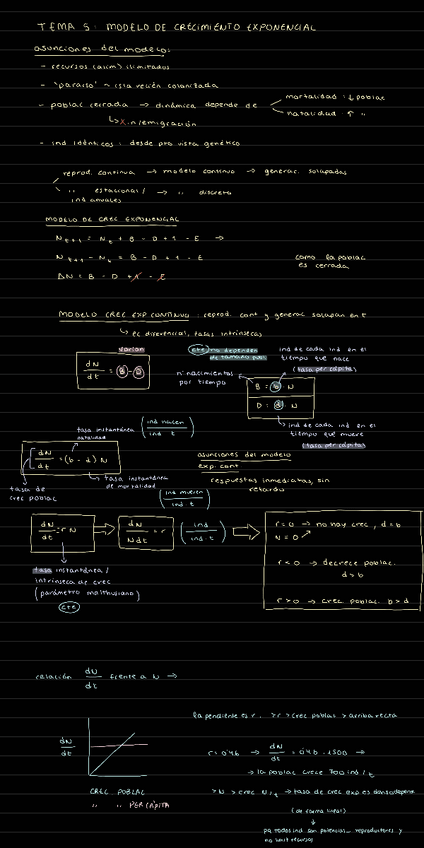 TEMA 5: MODELO DE CRECIMIENTO EXPONENCIAL
asunciones del modelo:
- recursos (alim) ilimitados
- "paraíso" ~ isla recién colonizada
- poblac cerrada → dinámica depende de
mortalidad: ↓ poblac
natalidad ↑ "
↳ X in/emigración
- ind idénticos: desde pto vista genético
reprod. continua → modelo continuo → generac. solapadas
" estacional / → " discreto
ind anuales
MODELO DE CREC EXPONENCIAL
N t+1 = N t + B - D + I - E →
N t+1 - N t = B - D + I - E
ΔN = B - D + I - E
como la poblac
es cerrada
MODELO CREC EXP CONTINUO: reprod. cont y generac solapan en t
↳ ec diferencial, tasas intrínsecas
varían
dN/dt = B - D
cte, no dependen
de tamaño pob
nº nacimientos
por tiempo
ind de cada ind en el
tiempo que nace
(tasa per cápita)
B = b · N
D = d · N
↳ ind de cada ind en el
tiempo que muere
(tasa per cápita)
tasa instantánea
natalidad
(ind nacen / ind t)
dN/dt = (b - d) N
tasa de
crec poblac
↳ tasa instantánea
de mortalidad
(ind mueren / ind t)
asunciones del modelo
exp. cont
respuestas inmediatas, sin
retardo
dN/dt = r N
dN/Ndt = r
(ind / ind · t)
r = 0 → no hay crec, d = b
N = 0
r < 0 → decrece poblac.
d > b
r > 0 → crec poblac. b > d
tasa instantánea /
intrínseca de crec
(parámetro malthusiano)
cte
relación dN/dt frente a N →
la pendiente es r. > r > crec poblac > arriba recta
dN/dt
r = 0'46 → dN/dt = 0'46 · 1500 →
→ la poblac crece 700 ind/t
CREC POBLAC
" " PER CÁPITA
> N > crec N/t → tasa de crec exp es densodepend
(de forma lineal)
pq todos ind son potencial. reproductores y
no limit recursos